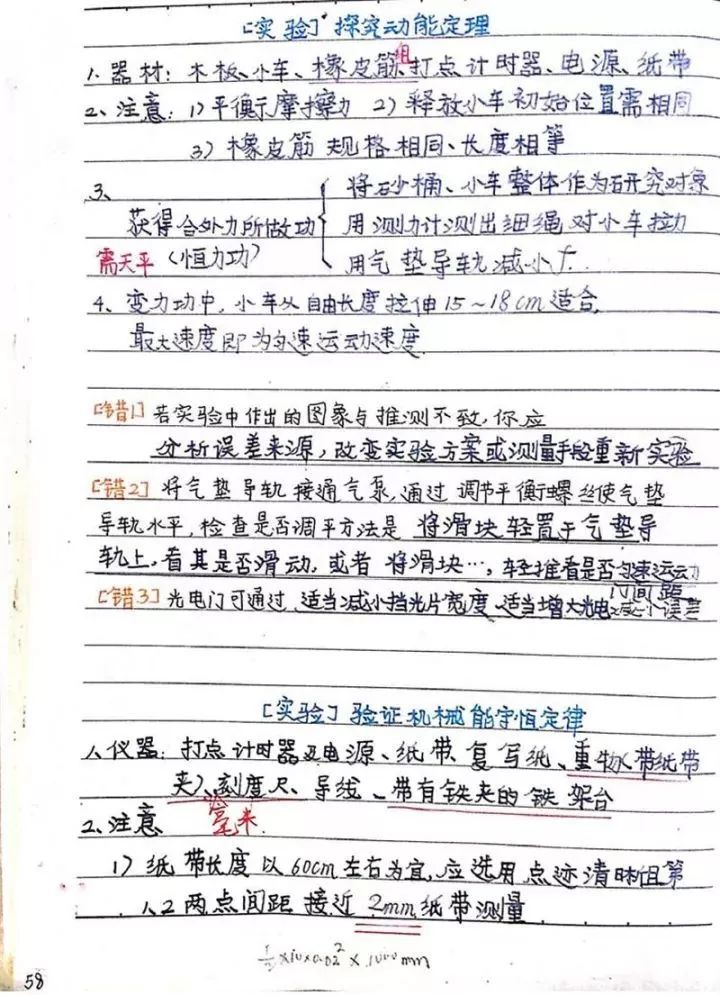 [实验] 探究动能定理
1、器材：木板、小车、橡皮筋组、打点计时器、电源、纸带
2、注意：1) 平衡摩擦力 2) 释放小车初始位置需相同
3) 橡皮筋规格相同、长度相等
3、
将砂桶、小车整体作为研究对象
获得合外力所做功 用测力计测出细绳对小车拉力
需天平 (恒力功) 用气垫导轨减小f.
4、变力功中，小车从自由长度拉伸15~18cm适合
最大速度即为匀速运动速度
[错1] 若实验中作出的图象与推测不致，你应
分析误差来源，改变实验方案或测量手段重新实验
[错2] 将气垫导轨接通气泵，通过调节平衡螺丝使气垫
导轨水平，检查是否调平方法是 将滑块轻置于气垫导
轨上，看其是否滑动，或者将滑块…，轻推看是否匀速运动
[错3] 光电门可通过 适当减小挡光片宽度、适当增大光电门间距减小误差
[实验] 验证机械能守恒定律
1、仪器：打点计时器及电源、纸带、复写纸、重物(带纸带
夹)、刻度尺、导线、带有铁夹的铁架台
毫米
2、注意
1) 纸带长度以60cm左右为宜，应选用点迹清晰且第
1、2两点间距接近2mm纸带测量
½×10×0.02²×1000mm
58